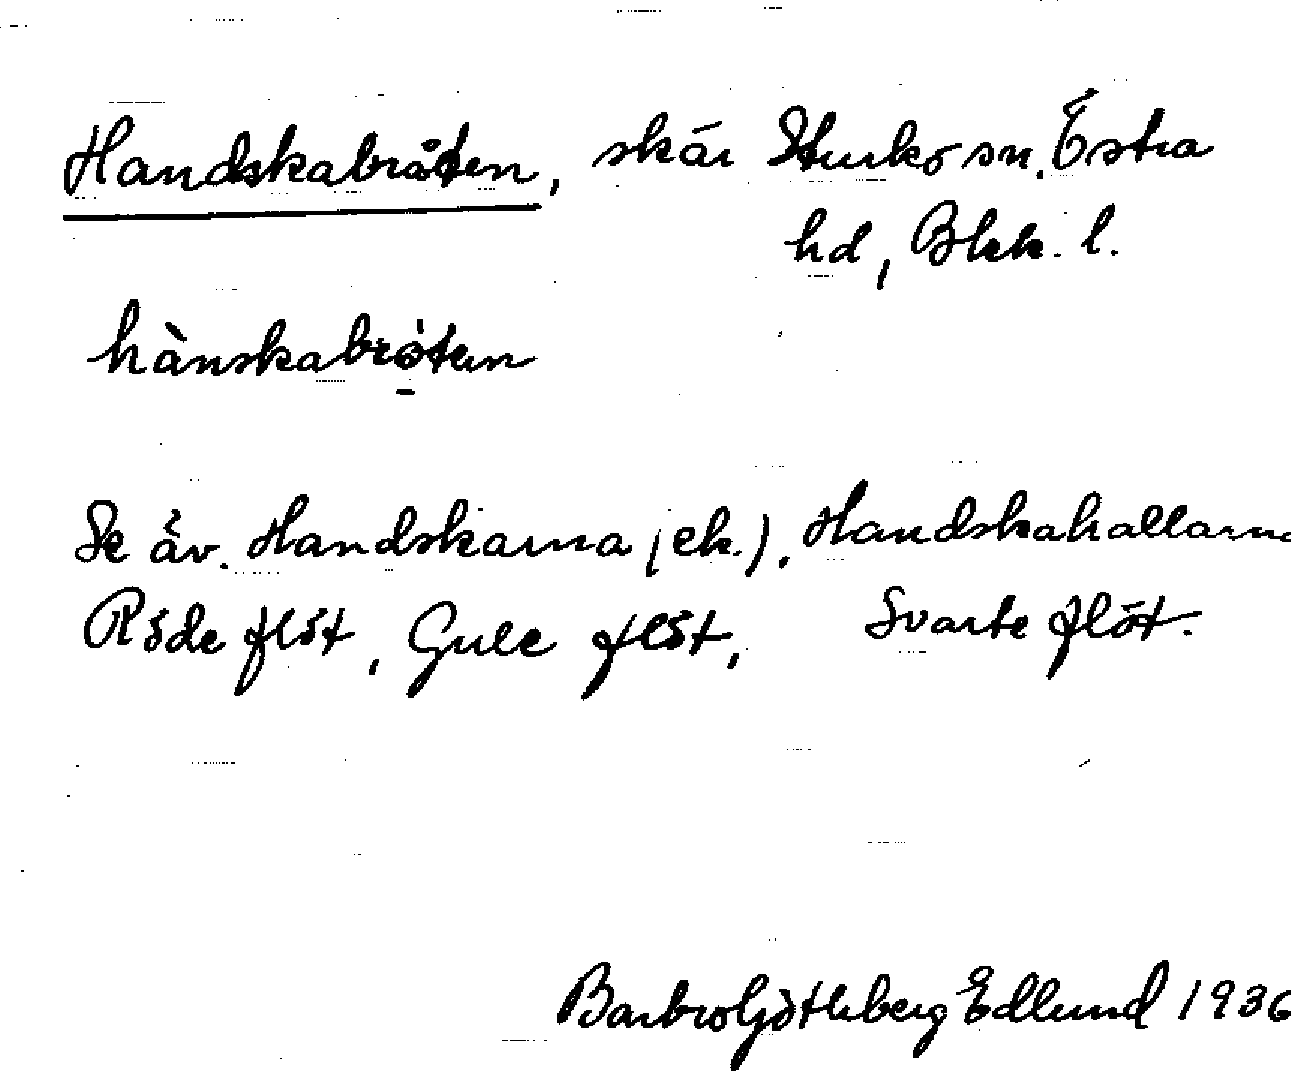 Handskabråten, skär Sturkö sn. Östra
hd, Blek. l.
hànskabrò̱ten
Se äv. Handskarna (ek.), Handskahallarna
Röde flöt, Gule flöt, Svarte flöt.
Barbro Götleberg Edlund 1936